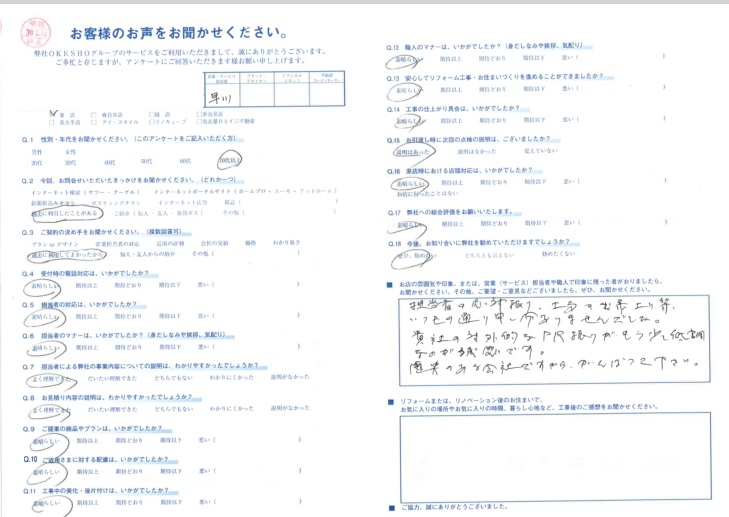 お客様のお声をお聞かせください。
弊社OKESHOグループのサービスをご利用いただきまして、誠にありがとうございます。
ご多忙と存じますが、アンケートにご回答いただきます様お願い申し上げます。
早川
Q.1 性別・年代をお聞かせください。（このアンケートをご記入いただく方）
男性 女性
20代 30代 40代 50代 60代 70代以上
Q.2 今回、お問合せいただいたきっかけをお聞かせください。（どれか一つ）
インターネット検索（ヤフー・グーグル） インターネットポータルサイト（ホームプロ・
新聞折込みチラシ ポスティングチラシ インターネット広告 雑誌（
過去に利用したことがある ご紹介（知人・友人・ その他（ ）
Q.3 ご契約の決め手をお聞かせください。（複数回答可）
プラン or デザイン 営業担当者の対応 近所の評判 会社の実績 価格 わかり易さ
過去に利用してよかったから 知人・友人からの紹介 その他（ ）
Q.4 受付時の電話対応は、いかがでしたか？
素晴らしい 期待以上 期待どおり 期待以下 悪い（ ）
Q.5 担当者の対応は、いかがでしたか？
素晴らしい 期待以上 期待どおり 期待以下 悪い（ ）
Q.6 担当者のマナーは、いかがでしたか？（身だしなみや挨拶、気配り）
素晴らしい 期待以上 期待どおり 期待以下 悪い（ ）
Q.7 担当者による弊社の事業内容についての説明は、わかりやすかったでしょうか？
よく理解できた だいたい理解できた どちらでもない わかりにくかった 説明がなかった
Q.8 お見積り内容の説明は、わかりやすかったでしょうか？
よく理解できた だいたい理解できた どちらでもない わかりにくかった 説明がなかった
Q.9 ご提案の商品やプランは、いかがでしたか？
素晴らしい 期待以上 期待どおり 期待以下 悪い（ ）
Q.10 ご近隣さまに対する配慮は、いかがでしたか？
素晴らしい 期待以上 期待どおり 期待以下 悪い（ ）
Q.11 工事中の美化・後片付けは、いかがでしたか？
素晴らしい 期待以上 期待どおり 期待以下 悪い（ ）
Q.12 職人のマナーは、いかがでしたか？（身だしなみや挨拶、気配り）
素晴らしい 期待以上 期待どおり 期待以下 悪い（ ）
Q.13 安心してリフォーム工事・お住まいづくりを進めることができましたか？
素晴らしい 期待以上 期待どおり 期待以下 悪い（ ）
Q.14 工事の仕上がり具合は、いかがでしたか？
素晴らしい 期待以上 期待どおり 期待以下 悪い（ ）
Q.15 お引渡し時に次回の点検の説明は、ございましたか？
説明はあった 説明はなかった 覚えていない
Q.16 来店時における店頭対応は、いかがでしたか？
素晴らしい 期待以上 期待どおり 期待以下 悪い（ ）
お店に行ったことはない
Q.17 弊社への総合評価をお願いいたします。
素晴らしい 期待以上 期待どおり 期待以下 悪い（ ）
Q.18 今後、お知り合いに弊社を勧めていただけますでしょうか？
ぜひ、勧めたい どちらとも言えない 勧めたくない
■ お店の雰囲気や印象、または、営業（サービス）担当者や職人で印象に残った者がおりましたら、
お聞かせください。その他、ご要望・ご意見などございましたら、ぜひ、お聞かせください。
担当者の応対振り、工事の出来上り等、
いつもの通り申し分ありませんでした。
貴社の対外的なPR振りがもう少し低調
なのが残念です。
歴史のある会社ですから、がんばって下さい。
■ リフォームまたは、リノベーション後のお住まいで、
お気に入りの場所やお気に入りの時間、暮らし心地など、工事後のご感想をお聞かせください。
■ ご協力、誠にありがとうございました。